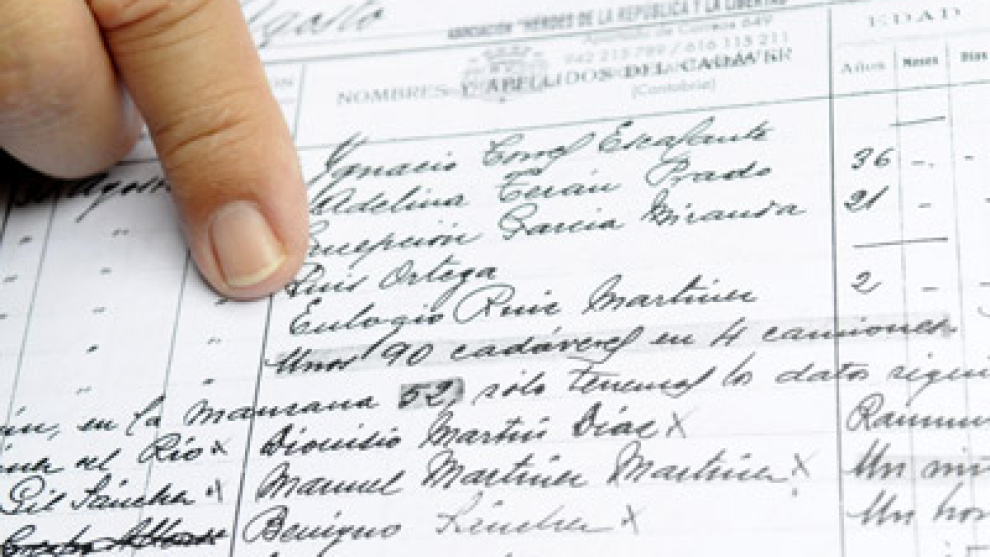 Agosto
ASOCIACIÓN "HÉROES DE LA REPÚBLICA Y LA LIBERTAD"
Apartado de Correos 649
942 213 789 / 616 113 211
(Cantabria)
NOMBRES Y APELLIDOS DEL CADAVER
EDAD
Años Meses Días
Ignacio Escalante
Agosto Adelina Terán Prado 36 -. -
" " Concepción García Miranda 21 - -
" " " Luis Ortega
" " Eulogio Ruiz Martínez 2 - -
" " " Unos 90 cadáveres en 4 camiones
en la manzana 52, sólo tenemos los datos
del Río x Dionisio Martín Díaz x
Gil Sánchez x Manuel Martínez Martínez x Un
Benigno Sánchez x Un